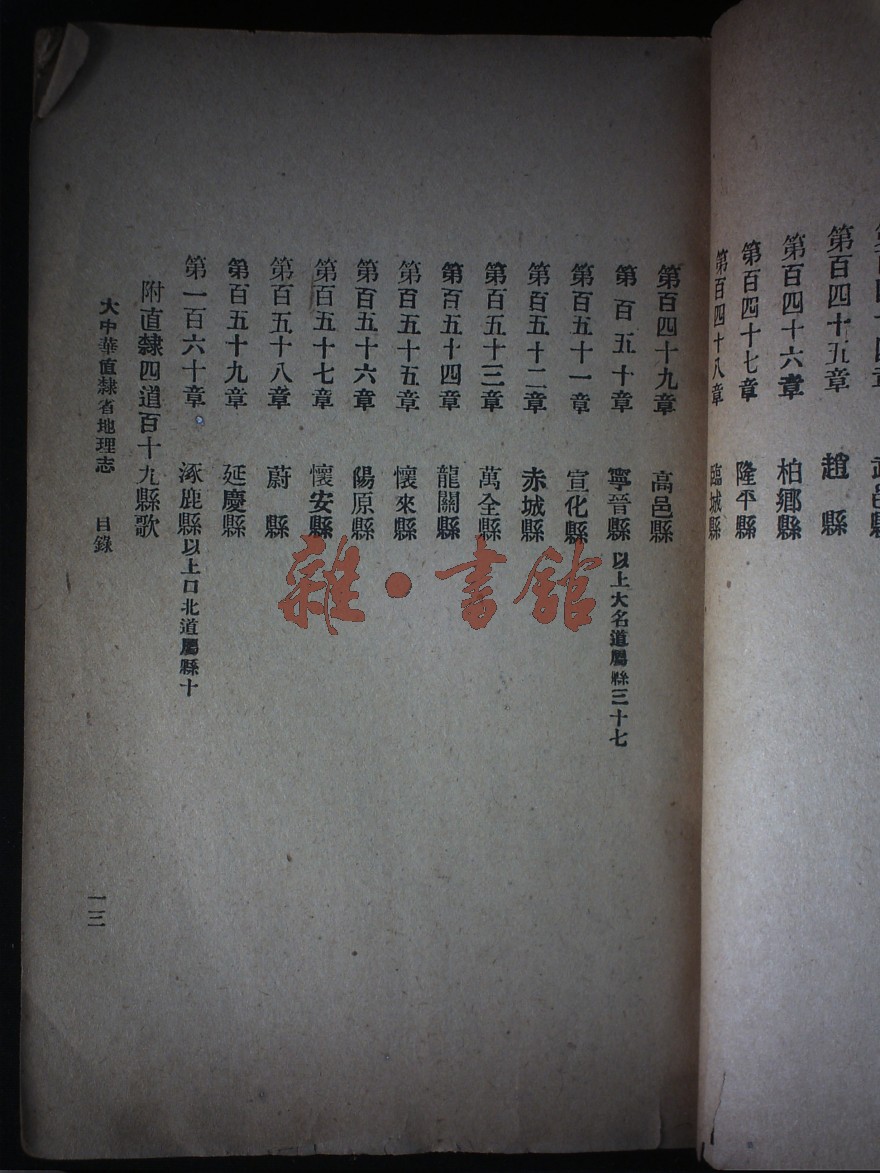 第百四十五章　趙　縣
第百四十六章　柏鄉縣
第百四十七章　隆平縣
第百四十八章　臨城縣
第百四十九章　高邑縣
第百五十章　寧晉縣以上大名道屬縣三十七
第百五十一章　宣化縣
第百五十二章　赤城縣
第百五十三章　萬全縣
第百五十四章　龍關縣
第百五十五章　懷來縣
第百五十六章　陽原縣
第百五十七章　懷安縣
第百五十八章　蔚　縣
第百五十九章　延慶縣
第一百六十章　涿鹿縣以上口北道屬縣十
附直隸四道百十九縣歌
大中華直隸省地理志　目錄
一三
雜・書館